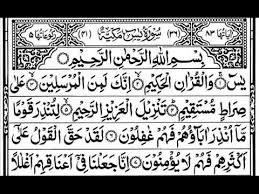 اٰیَاتُهَا ٨٣ (٣٦) سُوْرَةُ يٰسٓ مَكِّيَّةٌ (٤١) رُكُوْعَاتُهَا
بِسْمِ اللّٰهِ الرَّحْمٰنِ الرَّحِيْمِ
يٰسٓ ۚ وَالْقُرْاٰنِ الْحَكِيْمِ ۙ اِنَّكَ لَمِنَ الْمُرْسَلِيْنَ ۙ عَلٰى
صِرَاطٍ مُّسْتَقِيْمٍ ؕ تَنْزِيْلَ الْعَزِيْزِ الرَّحِيْمِ ۙ لِتُنْذِرَ قَوْمًا
مَّاۤ اُنْذِرَ اٰبَآؤُهُمْ فَهُمْ غٰفِلُوْنَ لَقَدْ حَقَّ الْقَوْلُ عَلٰۤى
اَكْثَرِهِمْ فَهُمْ لَا يُؤْمِنُوْنَ اِنَّا جَعَلْنَا فِيْۤ اَعْنَاقِهِمْ اَغْلٰلًا